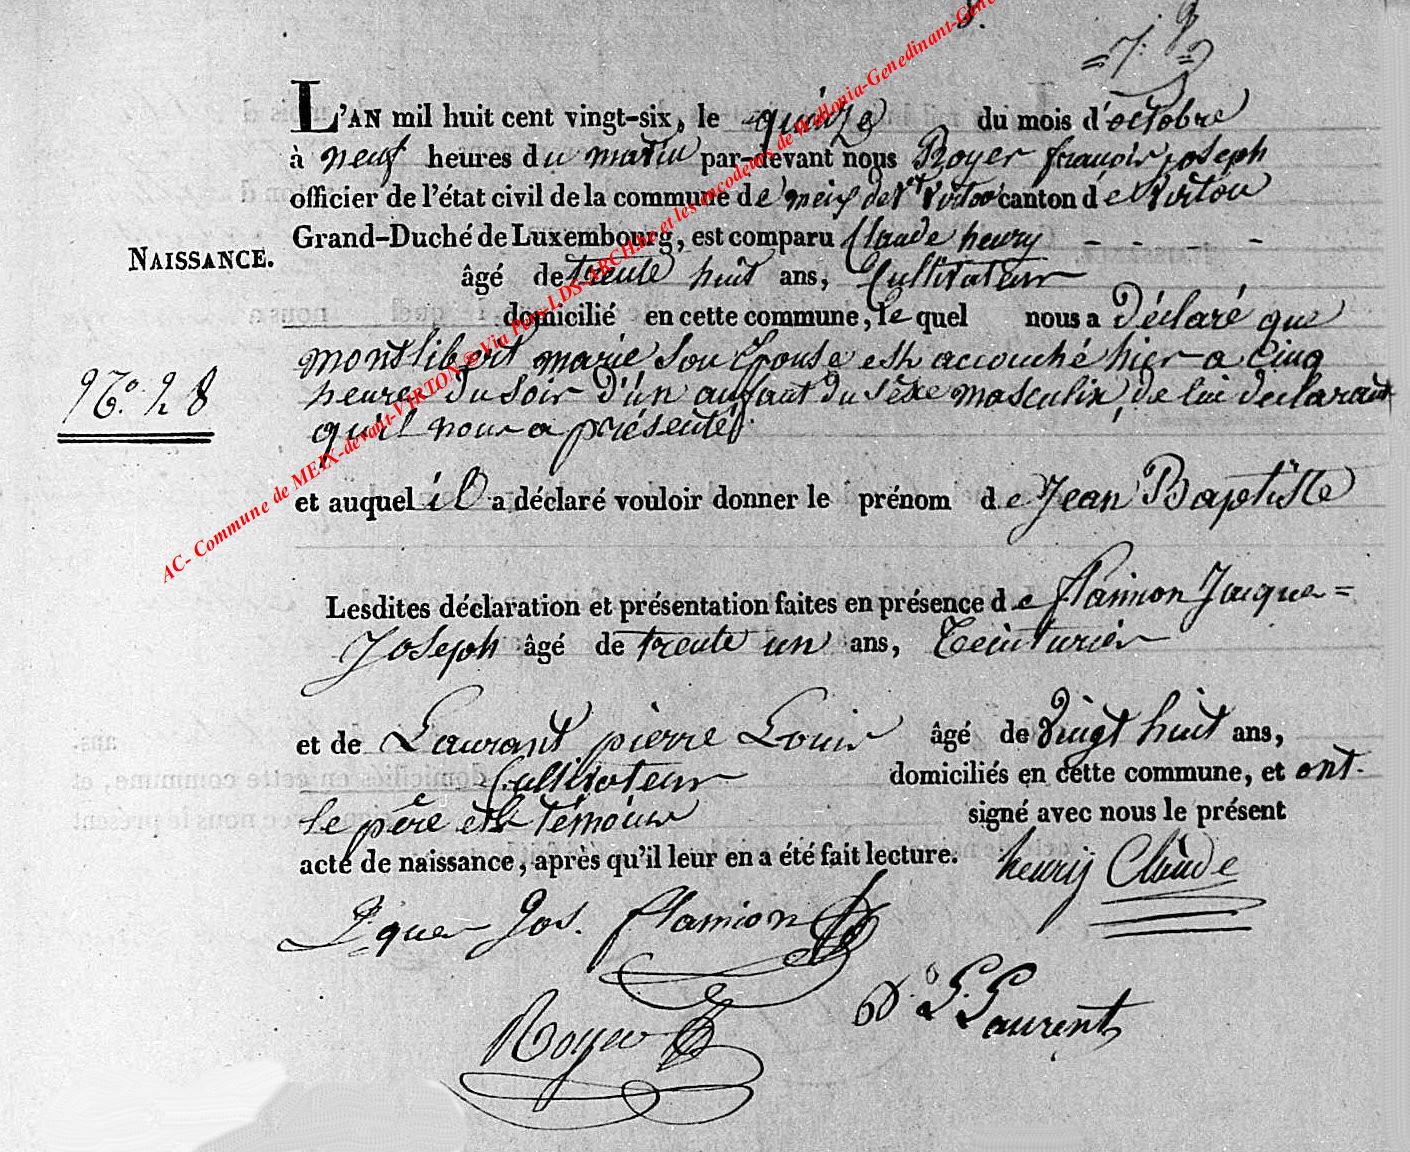 8.
= 7. =
L'AN mil huit cent vingt-six, le quinze du mois d'octobre
à neuf heures du matin par-devant nous Royer françois joseph
officier de l'état civil de la commune de meix devt virton canton de Virton
Grand-Duché de Luxembourg, est comparu Claude henry - - - -
NAISSANCE.
âgé de trente huit ans, Cultivateur
domicilié en cette commune, le quel nous a Déclaré que
montlibert marie son Epouse est accouché hier a Cinq
N.o 28
heures du soir D'un anfant du séxe masculin, de lui declarant
qu'il nous a présenté
et auquel il a déclaré vouloir donner le prénom de Jean Baptiste
Lesdites déclaration et présentation faites en présence de flamion Jacque =
Joseph âgé de trente un ans, teinturier
et de Laurant pierre Louis âgé de Vingt huit ans,
Cultivateur domiciliés en cette commune, et ont.
le père et les témoins signé avec nous le présent
acte de naissance, après qu'il leur en a été fait lecture.
henrij Claude
Jques Jos. flamion
P. L. Laurent
Royer
AC- Commune de MEIX-devant-VIRTON ® Via Pers-LDS-ARCH.be et les encodeurs de Wallonia-Genedinant-Gene